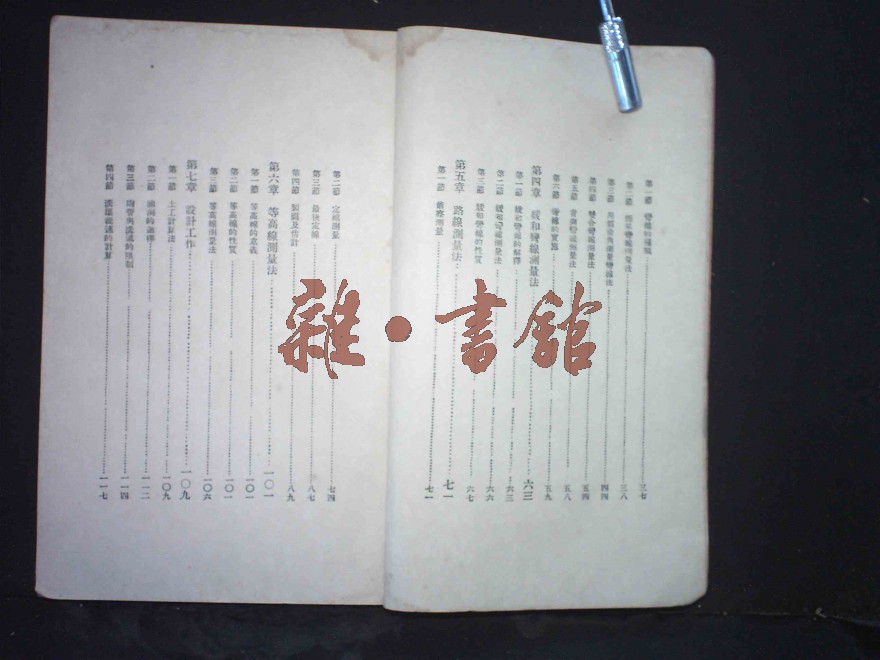 第一節 彎線的種類 三七
第二節 簡單彎線測量法 三八
第三節 四四
第四節 複合彎線測量法 五四
第五節 五八
第六節 彎線的實施 五九
第四章 緩和彎線測量法 六三
第一節 緩和彎線的解釋 六三
第二節 緩和彎線測量法 六六
第三節 緩和彎線的性質 六七
第五章 路線測量法 七一
第一節 測量 七一
第二節 定線測量 七四
第三節 最後定線 八七
第四節 製圖及估計 八九
第六章 等高線測量法 一〇一
第一節 等高線的意義 一〇一
第二節 等高線的性質 一〇一
第三節 等高線測量法 一〇六
第七章 設計工作 一〇九
第一節 土工計算法 一〇九
第二節 涵洞的選擇 一一二
第三節 一一四
第四節 的計算 一一七
雜·書館